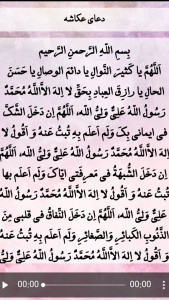 دعای عکاشه
بِسمِ اللّهِ الرَّحمنِ الرَّحیمِ
اَللّهُمَّ یا کَثیرَ النَّوالِ یا دائمَ الوِصالِ یا حَسَنَ
الحالِ یا رازِقَ العِبادِ بِحَقِّ لا اِلهَ الاّاللّهُ مُحَمَّدٌ
رَسُولُ اللّهُ عَلِیٌّ وَلِیُّ اللّه، اَللّهُمَّ اِن دَخَلَ الشَّکُ
فی ایمانی بِکَ وَلَم اَعلَم بِه تُبتُ عَنهُ وَ اَقُولُ لا
اِلهَ الاّاللّهُ مُحَمَّدٌ رَسُولُ اللّهُ عَلِیٌّ وَلِیُّ اللّه، اَللّهُمَّ
اِن دَخَلَ الشُّبهَةُ فی مَعرِفَتی اِیّاکَ وَلَم اَعلَم بِها
تُبتُ عَنهُ وَ اَقُولُ لا اِلهَ الاّاللّهُ مُحَمَّدٌ رَسُولُ اللّهُ
عَلِیٌّ وَلِیُّ اللّه، اَللّهُمَّ اِن دَخَلَ النِّفاقُ فی قَلبی مِنَ
الذُّنُوبِ الکَبائِرِ وَالصَّغائِرِ وَلَم اَعلَم بِهِ تُبتُ عَنهُ
وَ اَقُولُ لا اِلهَ الاّاللّهُ مُحَمَّدٌ رَسُولُ اللّهُ عَلِیٌّ وَلِیُّ
00:00 00:00